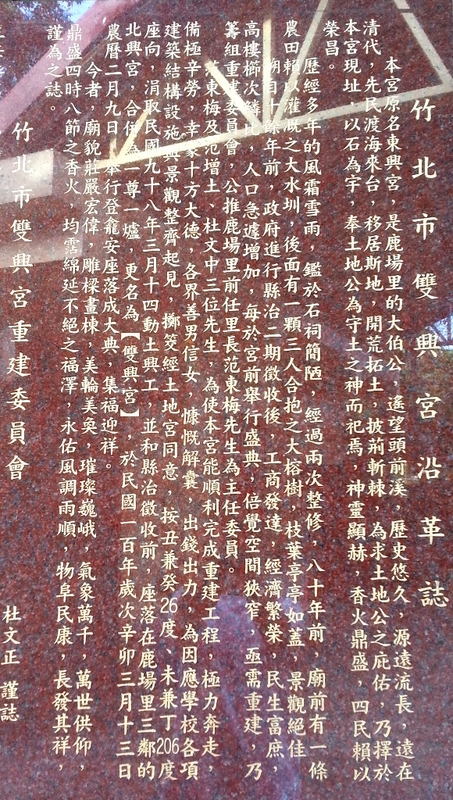 竹北市雙興宮沿革誌
本宮原名東興宮，是鹿場里的大伯公，遙望頭前溪，歷史悠久，源遠流長，遠在
清代，先民渡海來台，移居斯地，開荒拓土，披荊斬棘，為求土地公之庇佑，乃擇於
本宮現址，以石為宇，奉土地公為守土之神而祀焉，神靈顯赫，香火鼎盛，四民賴以
榮昌。
歷經多年的風霜雪雨，鑑於石祠簡陋，經過兩次整修，八十年前，廟前有一條
農田賴以灌溉之大水圳，後面有一顆三人合抱之大榕樹，枝葉亭亭如蓋，景觀絕佳
年前，政府進行縣治二期徵收後，工商發達，經濟繁榮，民生富庶，
高樓櫛次鱗比，人口急遽增加，每於宮前舉行盛典，倍覺空間狹窄，亟需重建，乃
籌組重建委員會，公推鹿場里前任里長范東梅先生為主任委員。
范東梅及范增土、杜文中三位先生，為使本宮能順利完成重建工程，極力奔走，
備極辛勞，幸蒙十方大德，各界善男信女，慷慨解囊，出錢出力，為因應學校各項
建築結構設施與景觀整齊起見，擲筊經土地宮同意，按丑兼癸26度、未兼丁206度
座向，涓取民國九十八年三月十四動土興工，並和縣治徵收前，座落在鹿場里三鄰的
北興宮，合併為一尊一爐，更名為【雙興宮】，於民國一百年歲次辛卯三月十三日
農曆二月九日，舉行登龕安座落成大典，集福迎祥。
今者，廟貌莊嚴宏偉，雕樑畫棟，美輪美奐，璀璨巍峨，氣象萬千，萬世供仰，
鼎盛四時八節之香火，均霑綿延不絕之福澤，永佑風調雨順，物阜民康，長發其祥，
謹為之誌。
竹北市雙興宮重建委員會
杜文正 謹誌